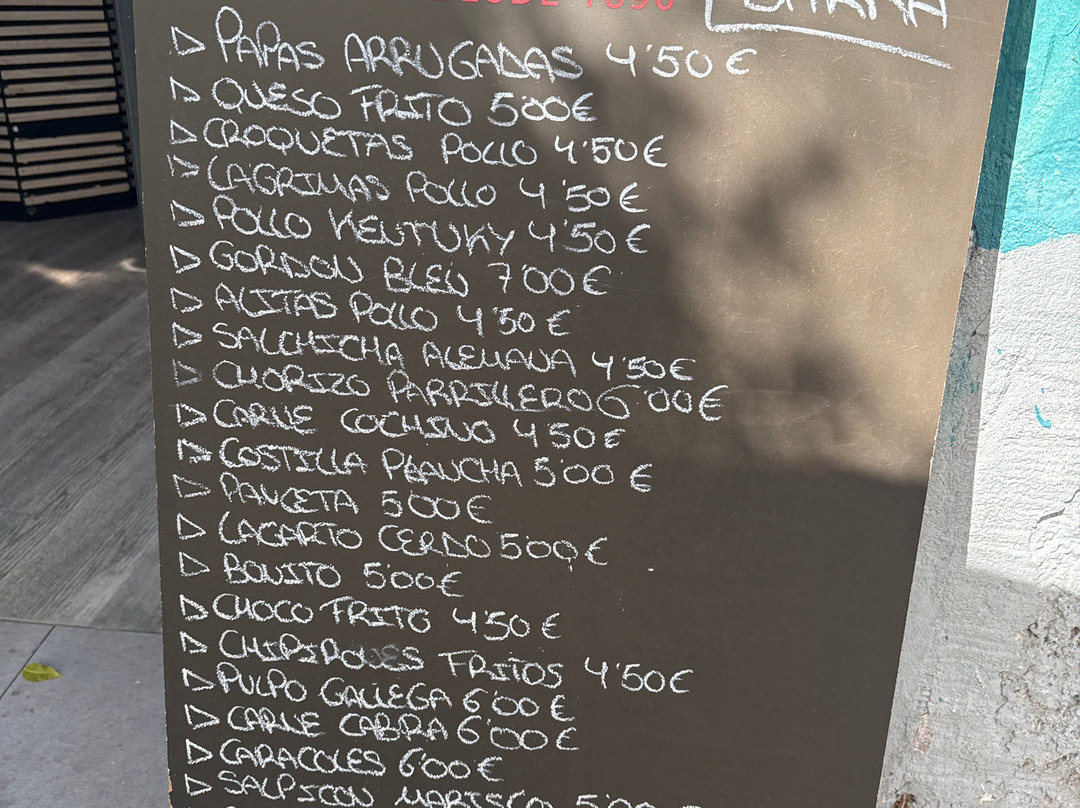 DESDE 1890
▷ PAPAS ARRUGADAS 4'50€
▷ QUESO FRITO 5'00€
▷ CROQUETAS POLLO 4'50€
▷ LAGRIMAS POLLO 4'50€
▷ POLLO KEUTUKY 4'50€
▷ GORDON BLEU 7'00€
▷ ALITAS POLLO 4'50€
▷ SALCHICHA ALEMANA 4'50€
▷ CHORIZO PARRILLERO 6'00€
▷ CARNE COCHINO 4'50€
▷ COSTILLA PLANCHA 5'00€
▷ PANCETA 5'00€
▷ LAGARTO CERDO 5'00€
▷ BONITO 5'00€
▷ CHOCO FRITO 4'50€
▷ CHIPIRONES FRITOS 4'50€
▷ PULPO GALLEGA 6'00€
▷ CARNE CABRA 6'00€
▷ CARACOLES 6'00€
▷ SALPICON MARISCO 5'00